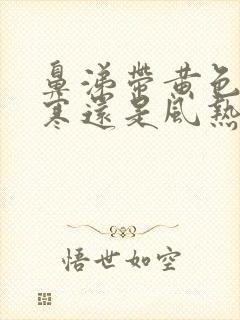 鼻涕帶黃色
寒還是風熱
悟世如空